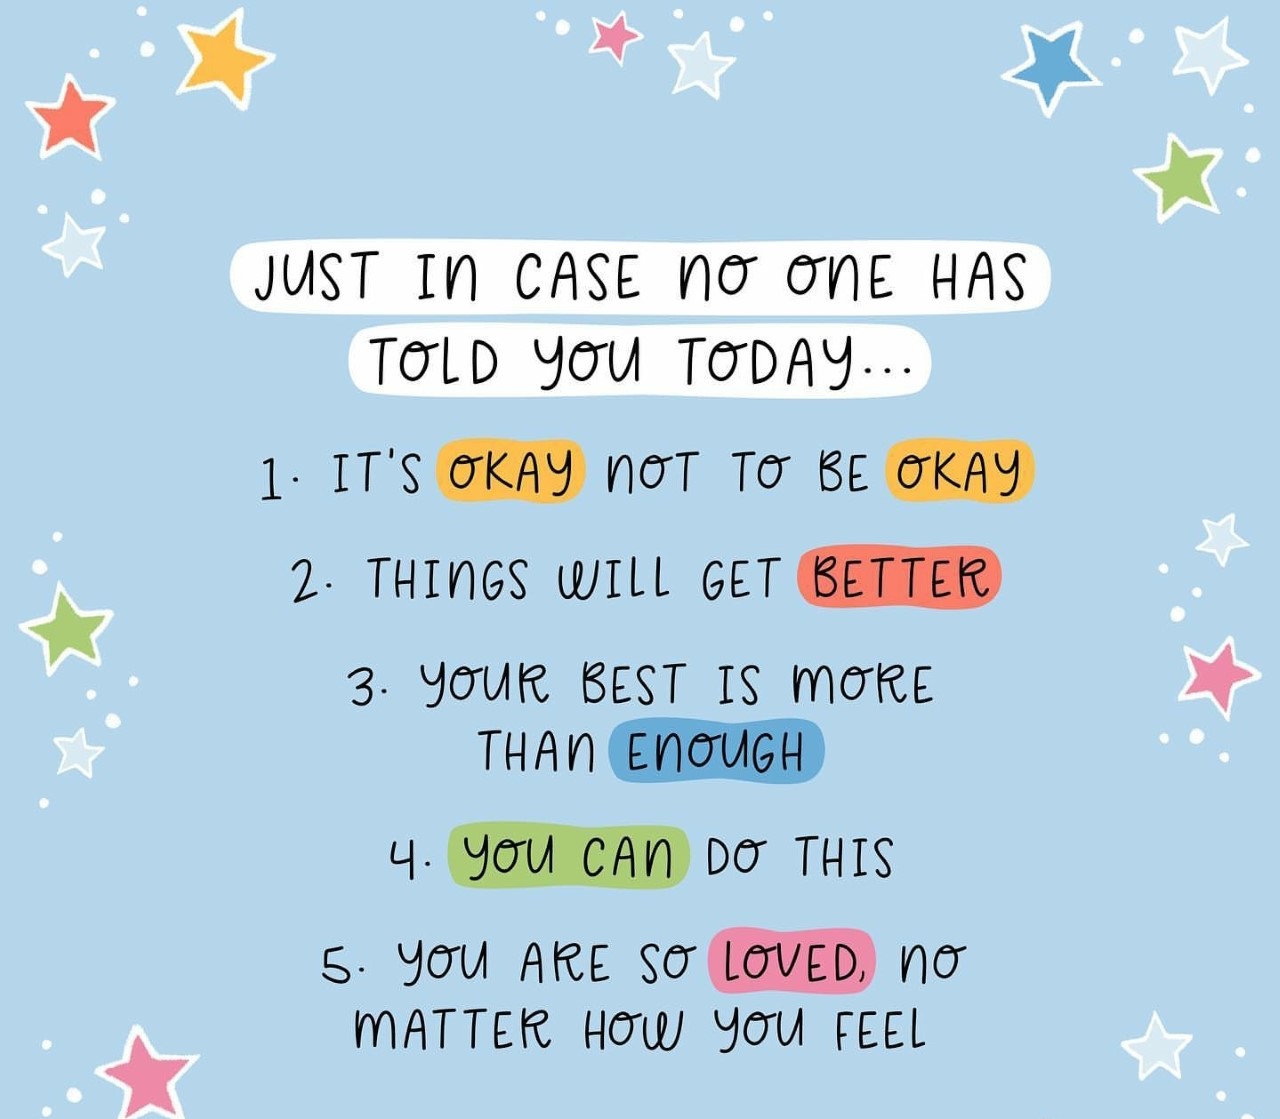 JUST IN CASE NO ONE HAS
TOLD YOU TODAY...
1. IT'S OKAY NOT TO BE OKAY
2. THINGS WILL GET BETTER
3. YOUR BEST IS MORE
THAN ENOUGH
4. YOU CAN DO THIS
5. YOU ARE SO LOVED, NO
MATTER HOW YOU FEEL